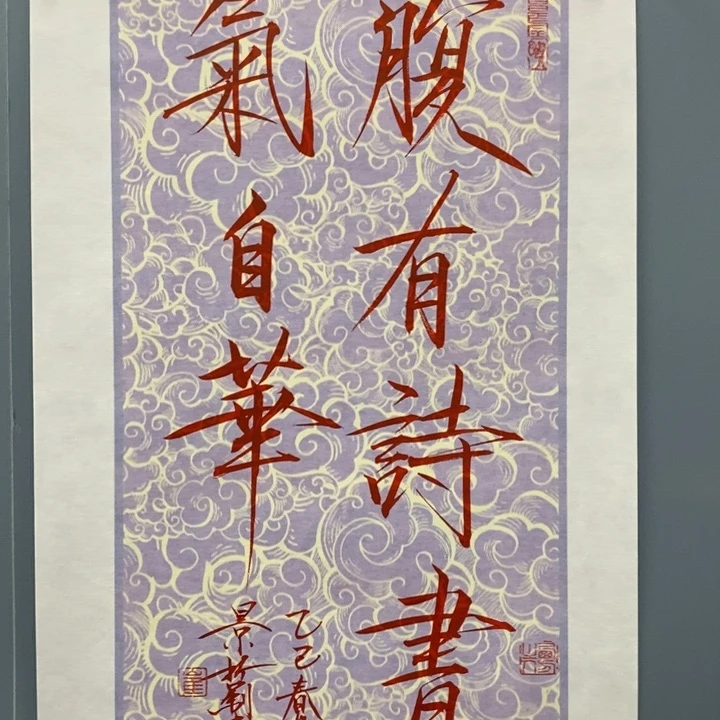 腹有詩書
氣自華
乙巳春
景